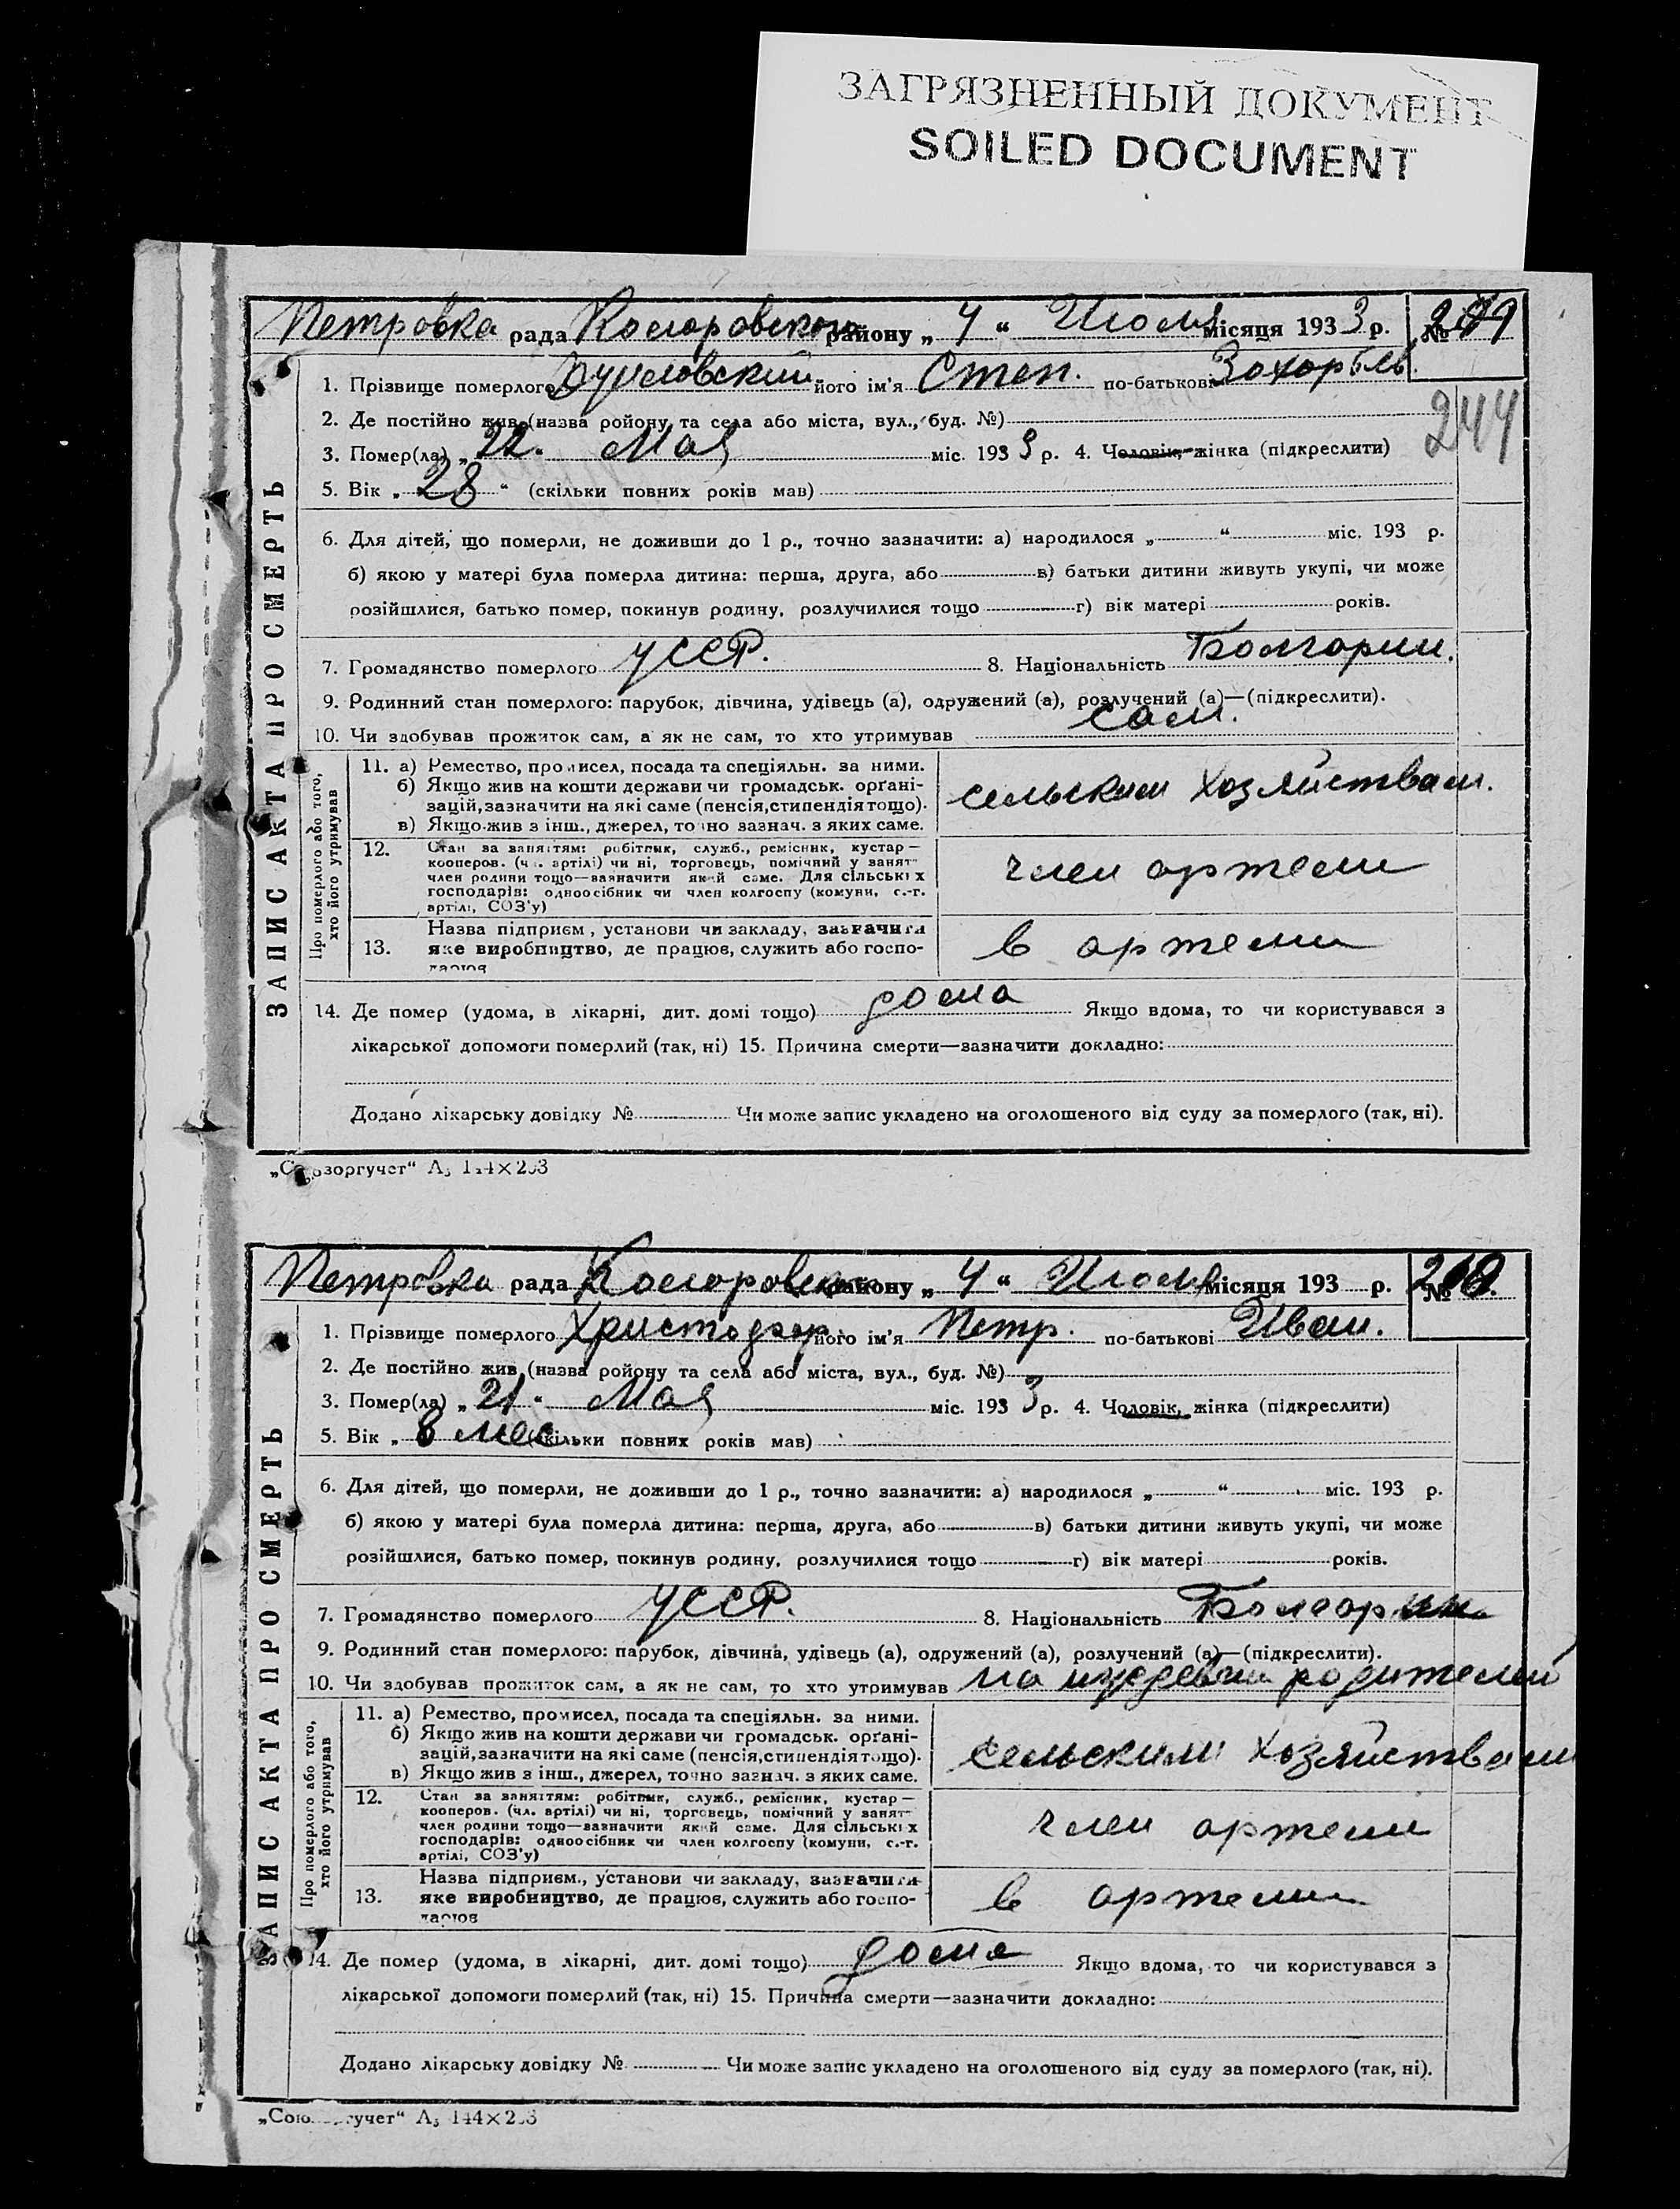 ЗАГРЯЗНЕННЫЙ ДОКУМЕНТ
SOILED DOCUMENT
Петровка рада району „ 4 “ Июля місяця 193 3 р. №
1. Прізвище померлого його ім'я Степ. по-батькові
244
2. Де постійно жив (назва ройону та села або міста, вул., буд. №)
3. Помер(ла) „ 22 “ Мая міс. 193 3 р. 4. Чоловік, жінка (підкреслити)
5. Вік „ 28 “ (скільки повних років мав)
6. Для дітей, що померли, не доживши до 1 р., точно зазначити: а) народилося „ “ міс. 193 р.
б) якою у матері була померла дитина: перша, друга, або в) батьки дитини живуть укупі, чи може
розійшлися, батько помер, покинув родину, розлучилися тощо г) вік матері років.
7. Громадянство померлого УССР. 8. Національність Болгарин.
9. Родинний стан померлого: парубок, дівчина, удівець (а), одружений (а), розлучений (а)—(підкреслити).
10. Чи здобував прожиток сам, а як не сам, то хто утримував сам.
ЗАПИС АКТА ПРО СМЕРТЬ
Про померлого або того, хто його утримував
11. а) Ремество, промисел, посада та спеціяльн. за ними.
б) Якщо жив на кошти держави чи громадськ. орґані-
зацій, зазначити на які саме (пенсія, стипендія тощо).
в) Якщо жив з інш., джерел, точно зазнач. з яких саме.
сельским хозяйствам.
12. Стан за заняттям: робітник, служб., ремісник, кустар—
кооперов. (чл. артілі) чи ні, торговець, помічний у занят-
член родини тощо—зазначити який саме. Для сільських
господарів: одноосібник чи член колгоспу (комуни, с.-г.
артілі, СОЗ'у)
член артели
13. Назва підприєм., установи чи закладу, зазначити
яке виробництво, де працює, служить або госпо-
дарює
в артели
14. Де помер (удома, в лікарні, дит. домі тощо) дома Якщо вдома, то чи користувався з
лікарської допомоги померлий (так, ні) 15. Причина смерти—зазначити докладно:
Додано лікарську довідку № Чи може запис укладено на оголошеного від суду за померлого (так, ні).
„Союзоргучет“ А₅ 144×203
Петровка рада району „ 4 “ Июля місяця 193 р. №
1. Прізвище померлого Христофор. його ім'я Петр. по-батькові Иван.
2. Де постійно жив (назва ройону та села або міста, вул., буд. №)
3. Помер(ла) „ 21 “ Мая міс. 193 3 р. 4. Чоловік, жінка (підкреслити)
5. Вік „ 8 мес (скільки повних років мав)
6. Для дітей, що померли, не доживши до 1 р., точно зазначити: а) народилося „ “ міс. 193 р.
б) якою у матері була померла дитина: перша, друга, або в) батьки дитини живуть укупі, чи може
розійшлися, батько помер, покинув родину, розлучилися тощо г) вік матері років.
7. Громадянство померлого УССР. 8. Національність Болгарин
9. Родинний стан померлого: парубок, дівчина, удівець (а), одружений (а), розлучений (а)—(підкреслити).
10. Чи здобував прожиток сам, а як не сам, то хто утримував на родителей
ЗАПИС АКТА ПРО СМЕРТЬ
Про померлого або того, хто його утримував
11. а) Ремество, промисел, посада та спеціяльн. за ними.
б) Якщо жив на кошти держави чи громадськ. орґані-
зацій, зазначити на які саме (пенсія, стипендія тощо).
в) Якщо жив з інш., джерел, точно зазнач. з яких саме.
сельским хозяйствам
12. Стан за заняттям: робітник, служб., ремісник, кустар—
кооперов. (чл. артілі) чи ні, торговець, помічний у занят-
член родини тощо—зазначити який саме. Для сільських
господарів: одноосібник чи член колгоспу (комуни, с.-г.
артілі, СОЗ'у)
член артели
13. Назва підприєм., установи чи закладу, зазначити
яке виробництво, де працює, служить або госпо-
дарює
в артели
14. Де помер (удома, в лікарні, дит. домі тощо) дома Якщо вдома, то чи користувався з
лікарської допомоги померлий (так, ні) 15. Причина смерти—зазначити докладно:
Додано лікарську довідку № Чи може запис укладено на оголошеного від суду за померлого (так, ні).
„Союзоргучет“ А₅ 144×203